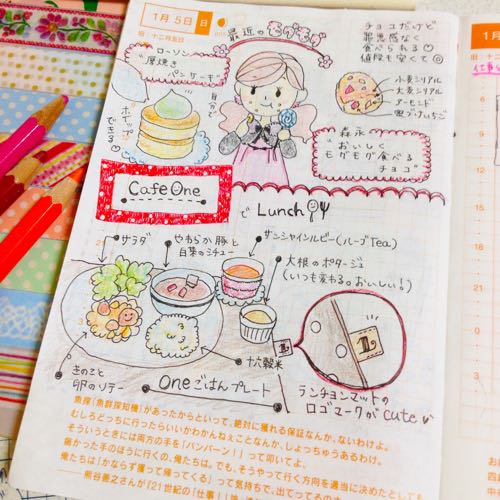 1月 5日 日
最近のモグモグ
ローソン
"厚焼き
パンケーキ"
自分で
ホイップ
できる
チョコだけど
罪悪感なく
食べられる♡
値段も安くて◎
小麦シリアル
大麦シリアル
アーモンド
森永
"おいしく
モグモグ食べる
チョコ"
Cafe One
で Lunch
サラダ
やわらか豚と
白菜のシチュー
サンシャインルビー(ハーブTea)
大根のポタージュ
(いつも変わる。おいしい!)
きのこと
卵のソテー
十六穀米
Oneごはんプレート
ランチョンマットの
ロゴマークがcute
魚探(魚群探知機)があったからといって、絶対に獲れる保証なんか、ないわけよ。
むしろどっちに行ったらいいかわかんねぇことなんか、しょっちゅうあるわけ。
そういうときには両方の手を「パンパーン!」って叩いてよ。
痛かった手のほうに行くの、俺たちは。でも、そうやって行く方向を適当に決めたとしても
俺たちは「かならず獲って帰ってくる」って気持ちで、出てってるの
──熊谷善之さんが『21世紀の「仕事」
1月